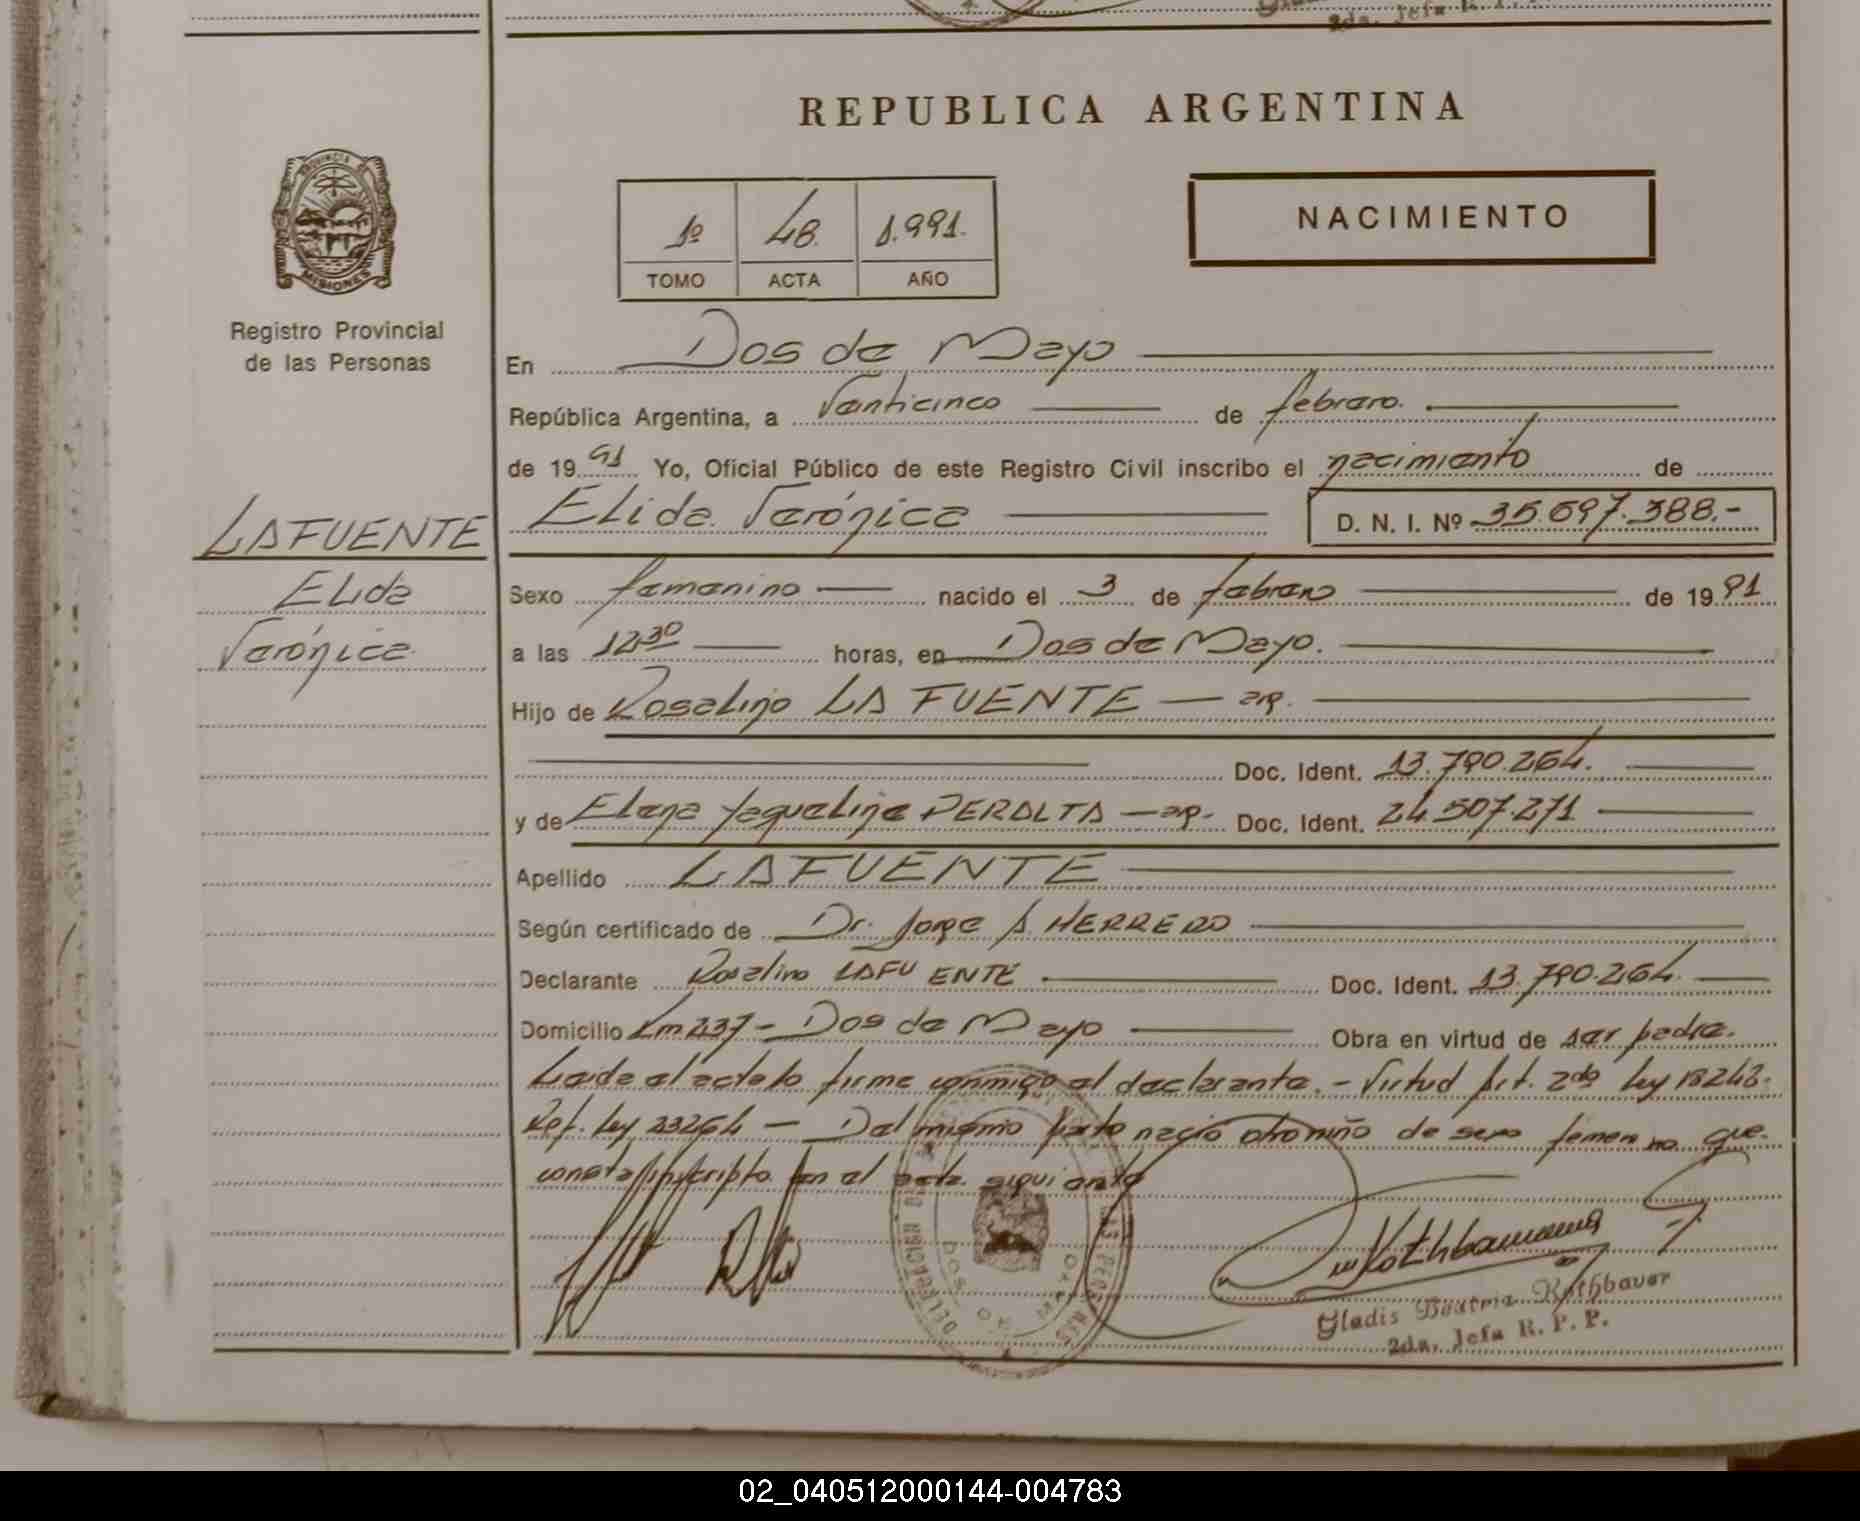 2da. Jefa R. P. P.
REPUBLICA ARGENTINA
PROVINCIA DE MISIONES
Registro Provincial
de las Personas
1º 48. 1.991.
TOMO ACTA AÑO
NACIMIENTO
En Dos de Mayo
República Argentina, a Veinticinco de febrero.
de 19 91 Yo, Oficial Público de este Registro Civil inscribo el nacimiento de
Elida Verónica D. N. I. Nº 35.697.388.-
LAFUENTE
Elida
Verónica
Sexo femenino nacido el 3 de febrero de 19 91
a las 12,30 horas, en Dos de Mayo.
Hijo de Rosalino LA FUENTE — ar.
Doc. Ident. 13.790.264.
y de Elena Yaqueline PERALTA — ar. Doc. Ident. 24.507.271
Apellido LAFUENTE
Según certificado de Dr. Jorge A. HERRERO
Declarante Rosalino LAFUENTE Doc. Ident. 13.790.264.
Domicilio Km 237 - Dos de Mayo Obra en virtud de ser padre.
Leida el acta la firma conmigo el declarante. - Virtud Art. 2do Ley 18248.
Ref. Ley 23264 — Del mismo parto nació otro niño de sexo femenino que
consta inscripto en el acta siguiente
Gladis Beatriz Rothbauer
2da. Jefa R. P. P.
02_040512000144-004783